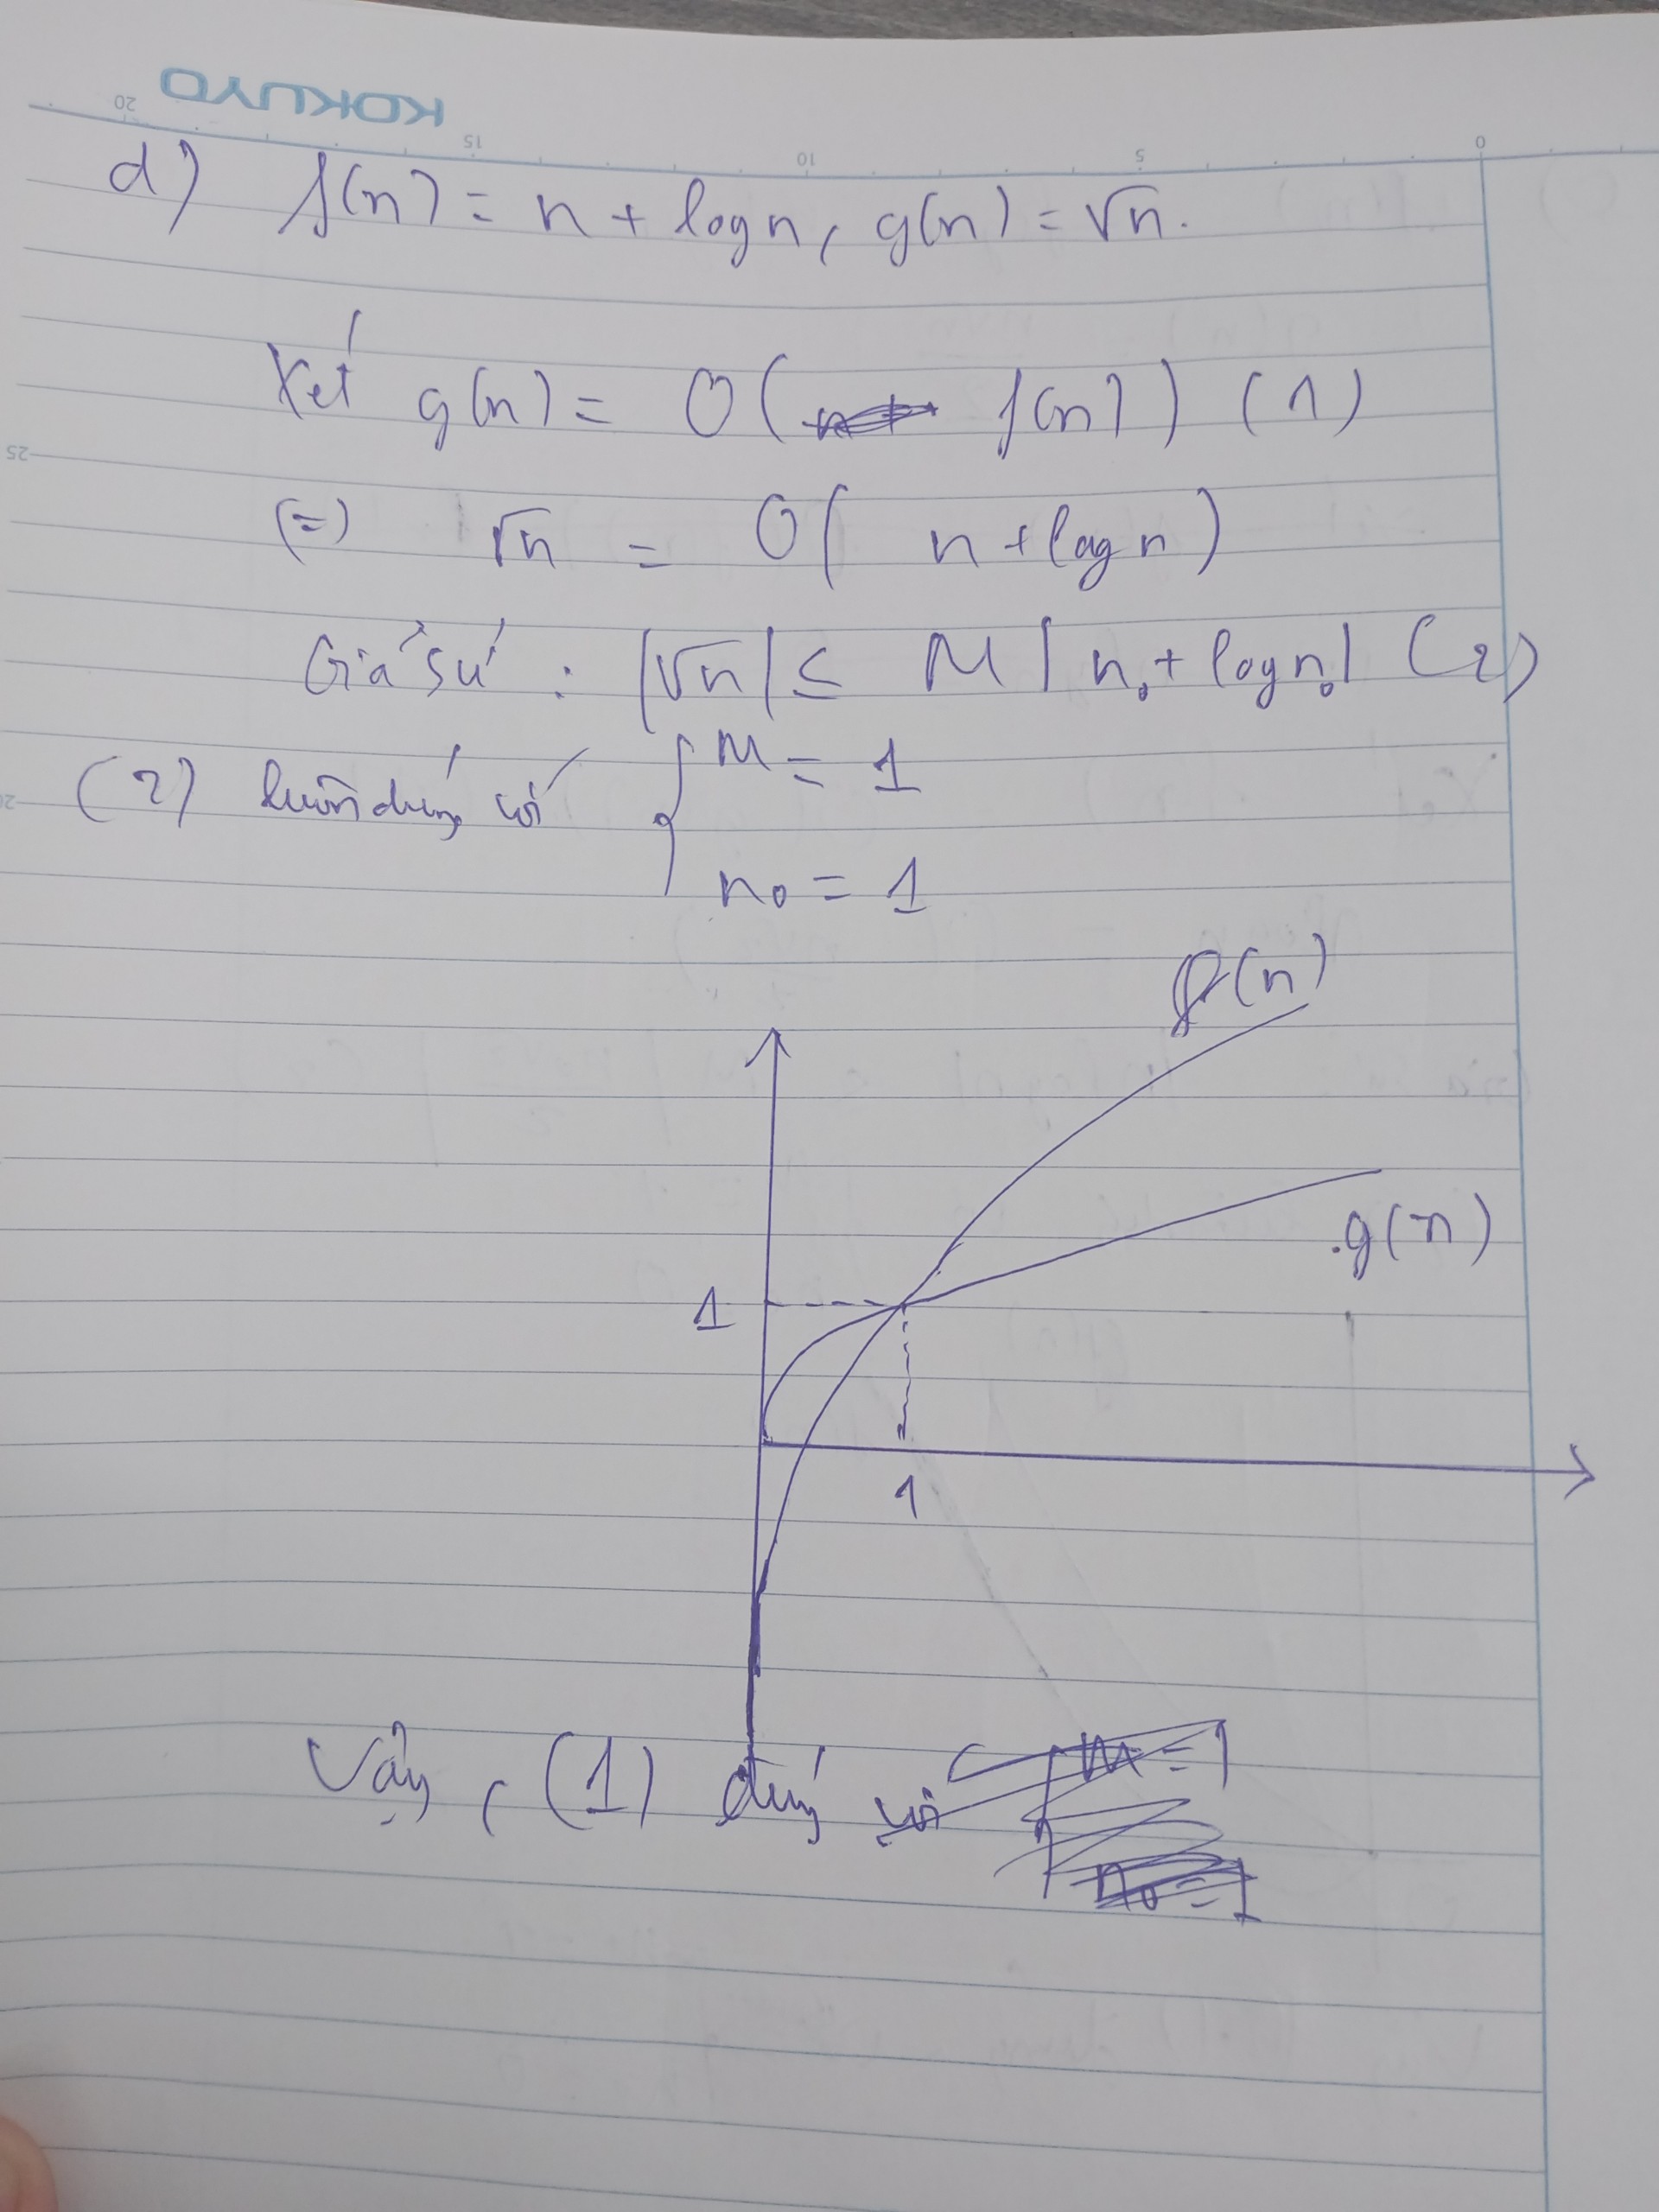 KOKUYO
20 15 10 5 0
d) f(n) = n + log n, g(n) = √n.
Xét g(n) = O( f(n)) (1)
25
(=) √n = O( n + log n)
Giả sử : |√n| ≤ M | n₀ + log n₀| (2)
(2) luôn đúng với { M = 1
n₀ = 1
f(n)
g(n)
1
1
Vậy, (1) đúng với M = 1
n₀ = 1